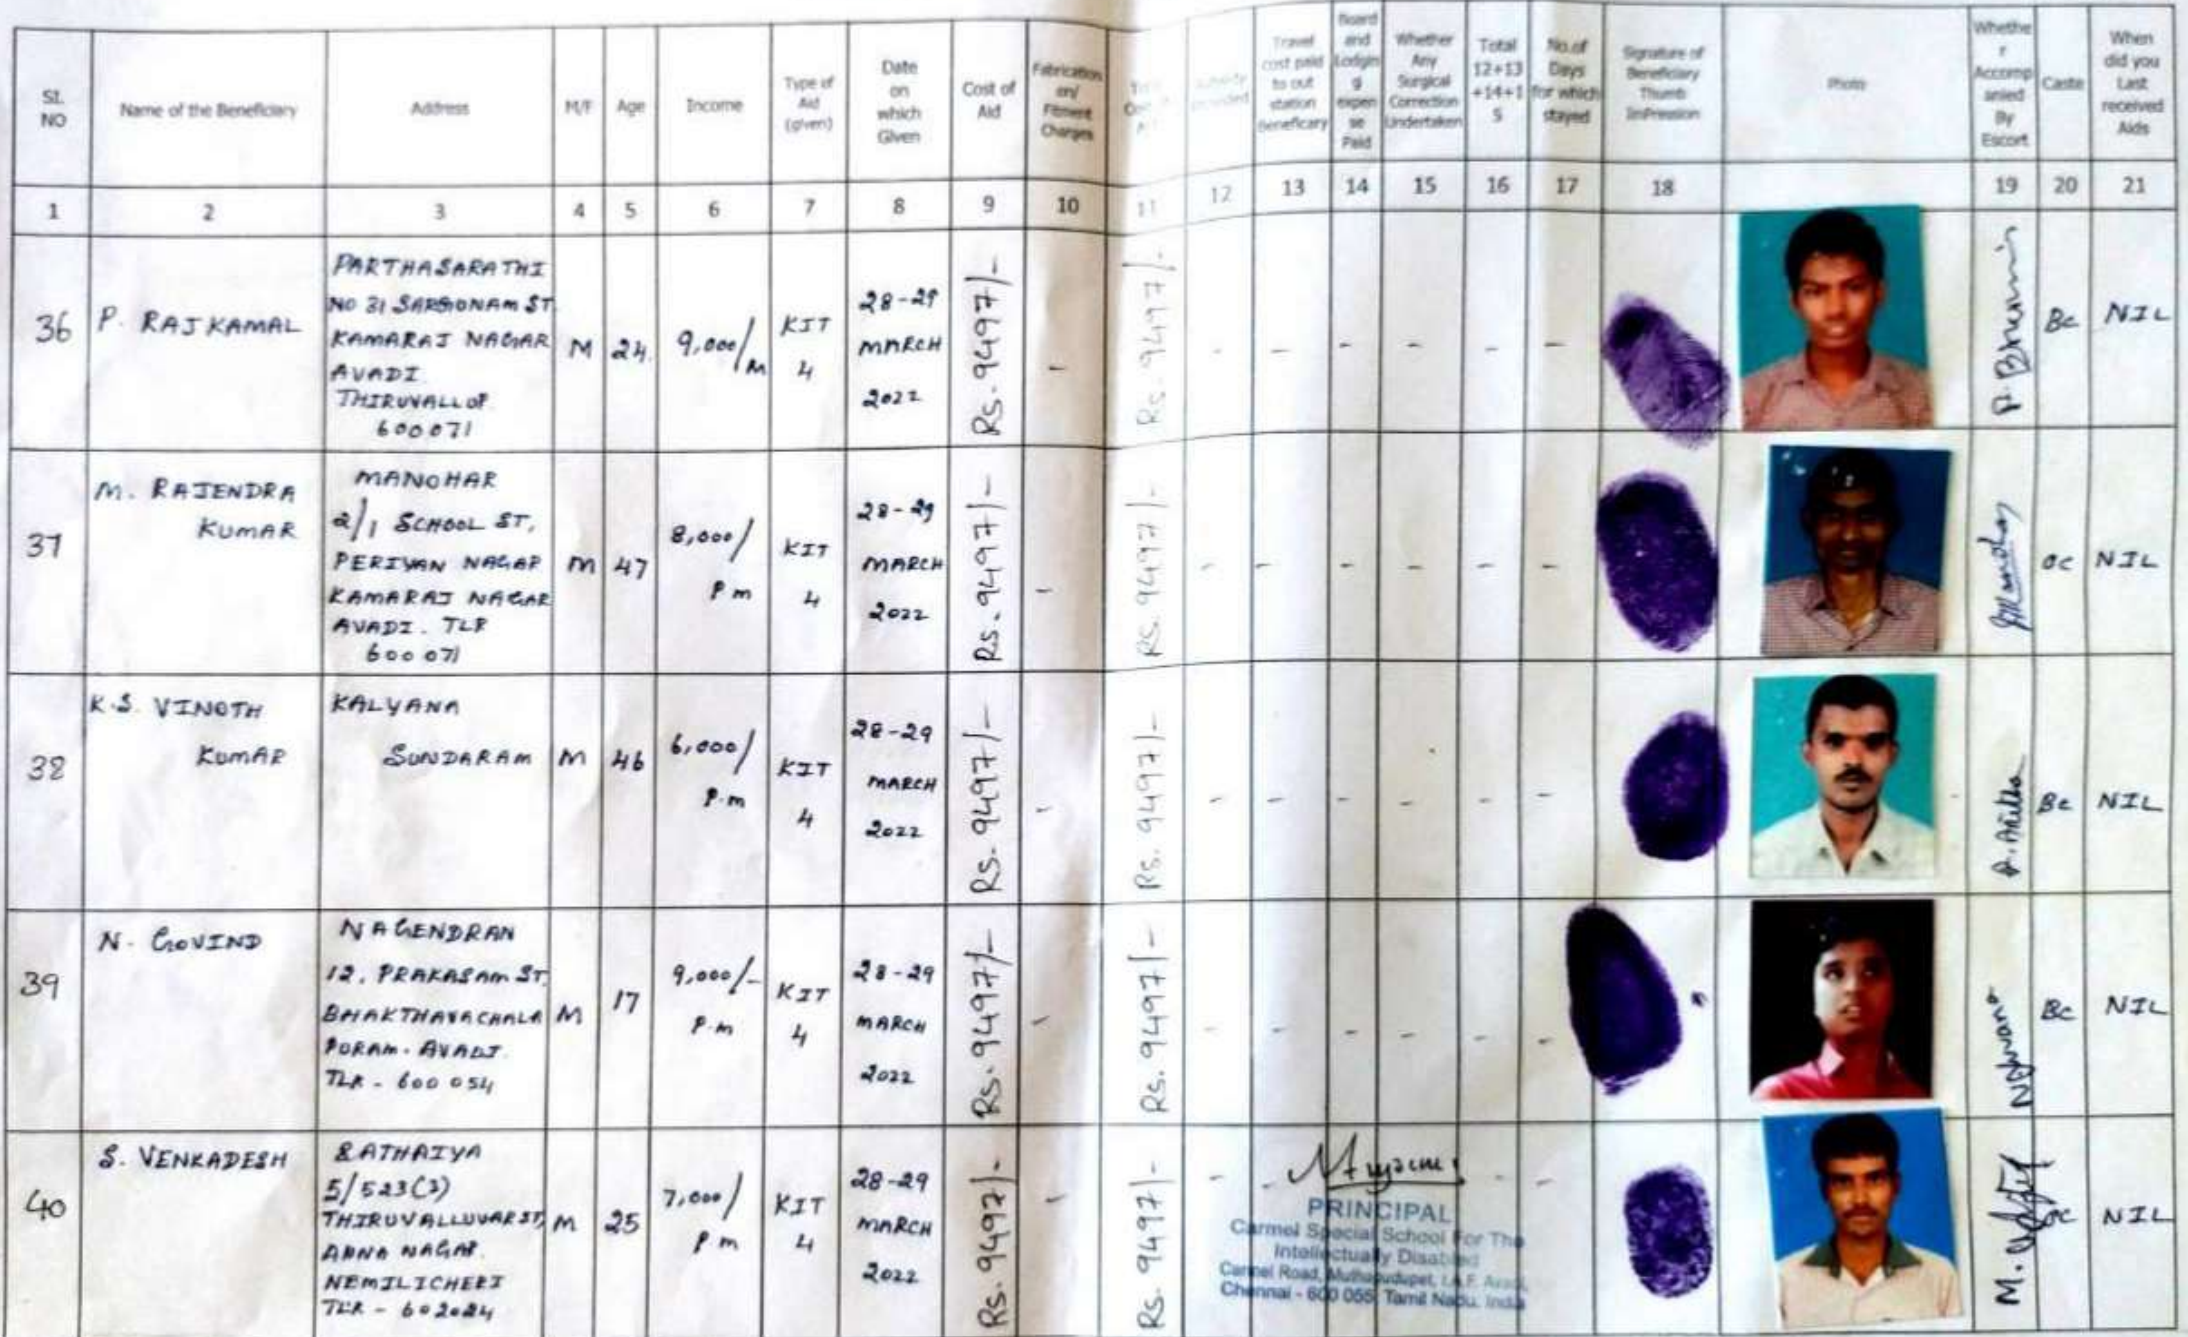 SL NO
Name of the Beneficiary
Address
M/F
Age
Income
Type of Aid (given)
Date on which Given
Cost of Aid
Fabrication en/ Fitment Charges
Travel cost paid to out station Beneficary
Board and Lodgin g expen se Paid
Whether Any Surgical Correction Undertaken
Total 12+13 +14+1 5
No.of Days for which stayed
Signature of Beneficiary Thumb ImPression
Photo
Whethe r Accomp anied By Escort
Caste
When did you Last received Aids
1 2 3 4 5 6 7 8 9 10 11 12 13 14 15 16 17 18 19 20 21
36
P. RAJKAMAL
PARTHASARATHI
NO 31 ST
KAMARAJ NAGAR
AVADI
600071
M
24
9,000/M
KIT 4
28-29
MARCH
2022
Rs. 9497/-
-
Rs. 9497/-
- - - - - -
Bc
NIL
37
M. RAJENDRA
KUMAR
MANOHAR
2/1 SCHOOL ST,
PERIYAR NAGAR
KAMARAJ NAGAR
AVADI. TLR
600 071
M
47
8,000/
P m
KIT 4
28-29
MARCH
2022
Rs. 9497/-
-
Rs. 9497/-
- - - - - -
oc
NIL
38
K.S. VINOTH
KUMAR
KALYANA
SUNDARAM
M
46
6,000/
P.m
KIT 4
28-29
MARCH
2022
Rs. 9497/-
-
Rs. 9497/-
- - - - - -
Bc
NIL
39
N. GOVIND
NAGENDRAN
12, PRAKASAM ST,
BHAKTHAVACHALA
PURAM. AVADI.
TLR - 600 054
M
17
9,000/-
P.m
KIT 4
28-29
MARCH
2022
Rs. 9497/-
-
Rs. 9497/-
- - - - - -
Bc
NIL
40
S. VENKADESH
5/523(3)
THIRUVALLUVAR ST,
ANNA NAGAR.
NEMILICHERI
TLR - 602024
M
25
7,000/
P m
KIT 4
28-29
MARCH
2022
Rs. 9497/-
-
Rs. 9497/-
NIL
PRINCIPAL
Carmel Special School For The
Intellectually Disabled
Carmel Road, Muthapudupet, I.A.F. Avadi,
Chennai - 600 055, Tamil Nadu. India